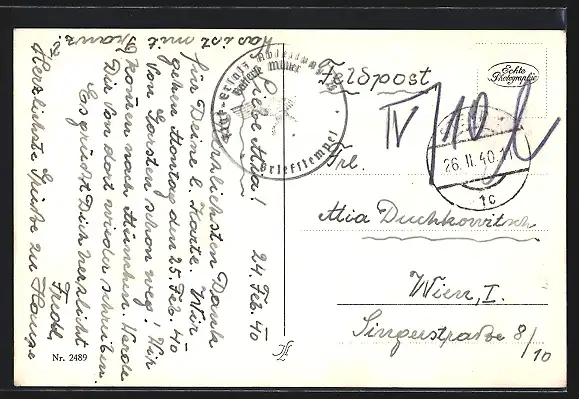 Feldpost
Echte
Photographie
IV/10
26.II.40.11
1c
Frl.
Mia Duchkowitsch
Wien, I.
Singerstraße 8/10
Briefstempel
24. Feb. 40
Liebe Mia!
Herzlichsten Dank
für Deine l. Karte. Wir
gehen Montag den 25. Feb. 40
von                 schon weg! Wir
kommen nach München. Werde
Dir von dort wieder schreiben.
Es grüßt Dich herzlichst
Fredl
Herzlichste Grüße zu Hause
Was ist mit
Franz
?
Nr. 2489